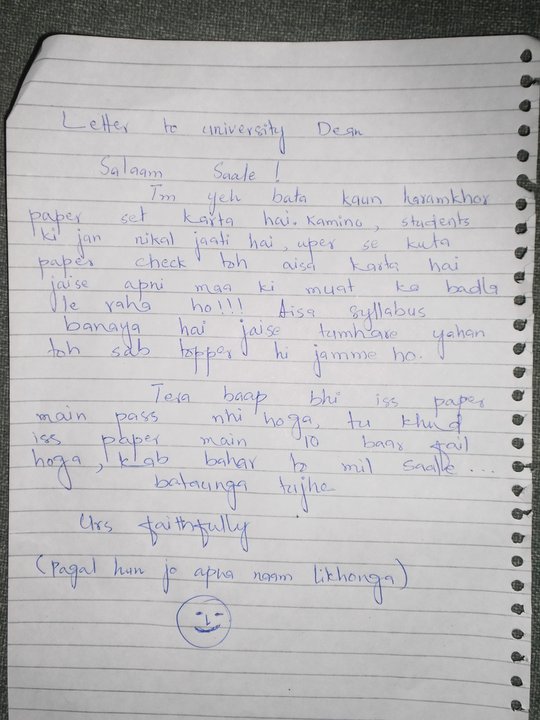 Letter to university Dean
Salaam Saale !
Tm yeh bata kaun haramkhor
paper set karta hai. Kamino, students
ki jan nikal jaati hai, uper se kuta
paper check toh aisa karta hai
jaise apni maa ki muat ka badla
le raha ho!!! Aisa syllabus
banaya hai jaise tumhare yahan
toh sab topper hi jamme ho.
Tera baap bhi iss paper
main pass nhi hoga, tu khud
iss paper main 10 baar fail
hoga, kab bahar to mil saale ...
bataunga tujhe
Urs faithfully
(Pagal hun jo apna naam likhonga)